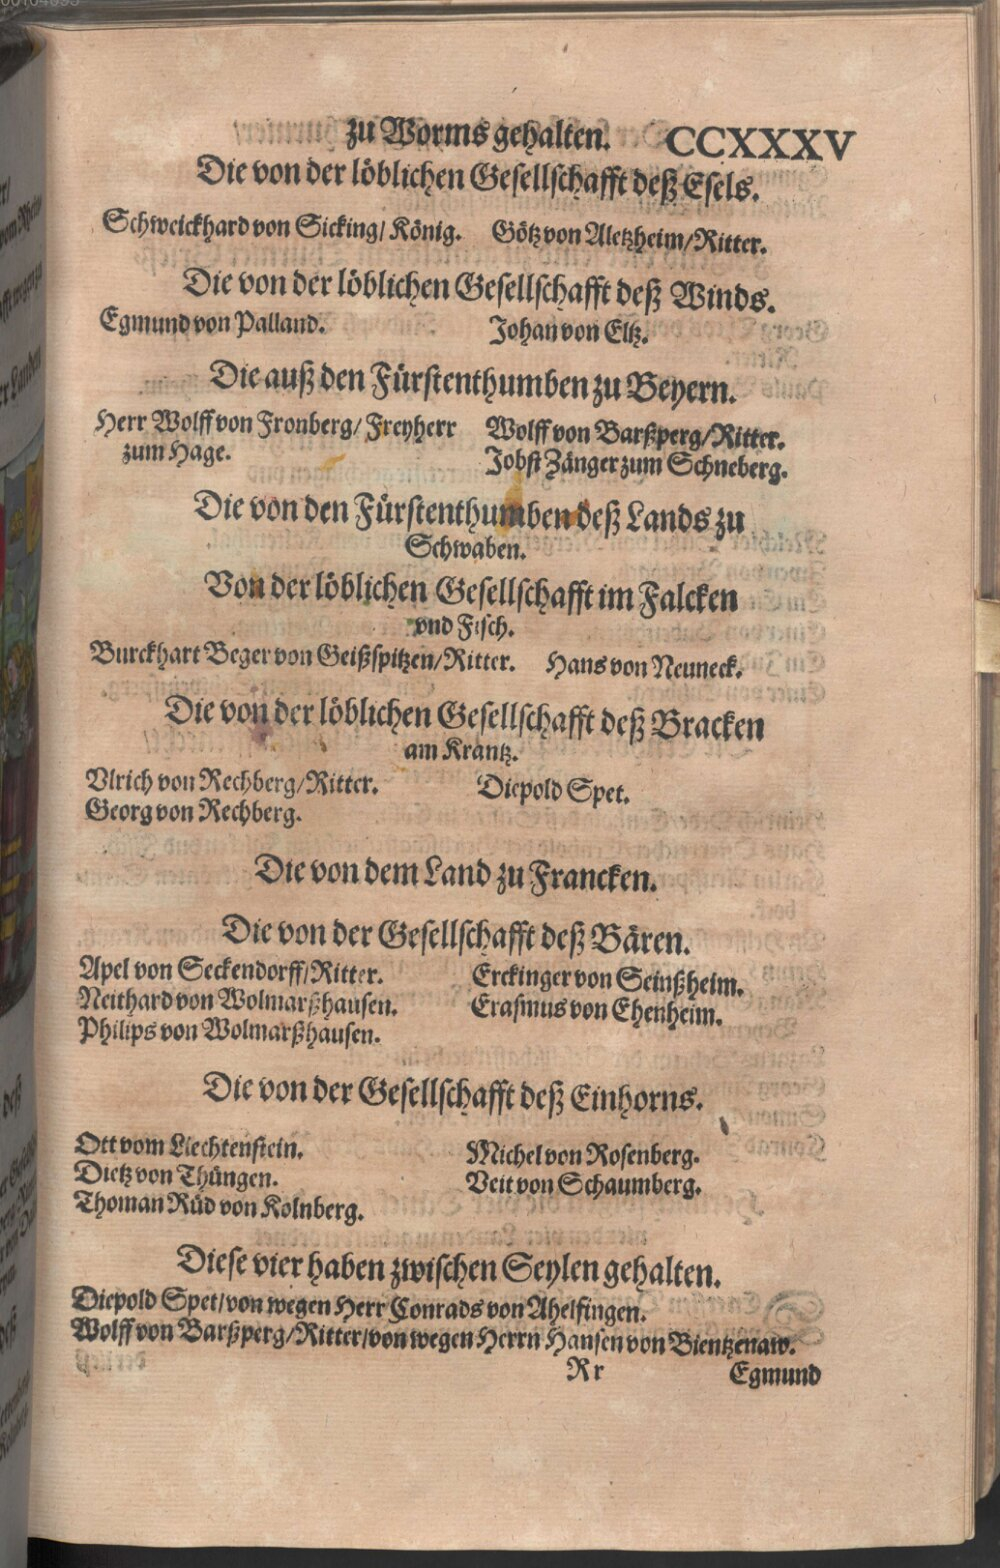 zu Worms gehalten. CCXXXV
Die von der löblichen Gesellschafft deß Esels.
Schweickhard von Sicking/ König. Götz von Aletzheim/Ritter.
Die von der löblichen Gesellschafft deß Winds.
Egmund von Palland. Johan von Eltz.
Die auß den Fürstenthumben zu Beyern.
Herr Wolff von Fronberg/ Freyherr
zum Hage.
Wolff von Barßperg/Ritter.
Jobst Zänger zum Schneberg.
Die von den Fürstenthumben deß Lands zu
Schwaben.
Von der löblichen Gesellschafft im Falcken
vnd Fisch.
Burckhart Beger von Geißspitzen/Ritter. Hans von Neuneck.
Die von der löblichen Gesellschafft deß Bracken
am Krantz.
Vlrich von Rechberg/Ritter. Diepold Spet.
Georg von Rechberg.
Die von dem Land zu Francken.
Die von der Gesellschafft deß Bären.
Apel von Seckendorff/Ritter. Erckinger von Seinßheim.
Neithard von Wolmarßhausen. Erasmus von Ehenheim.
Philips von Wolmarßhausen.
Die von der Gesellschafft deß Einhorns.
Ott vom Liechtenstein. Michel von Rosenberg.
Dietz von Thüngen. Veit von Schaumberg.
Thoman Rüd von Kolnberg.
Diese vier haben zwischen Seylen gehalten.
Diepold Spet/von wegen Herr Conrads von Ahelfingen.
Wolff von Barßperg/Ritter/von wegen Herrn Hansen von Bientzenaw.
Rr Egmund